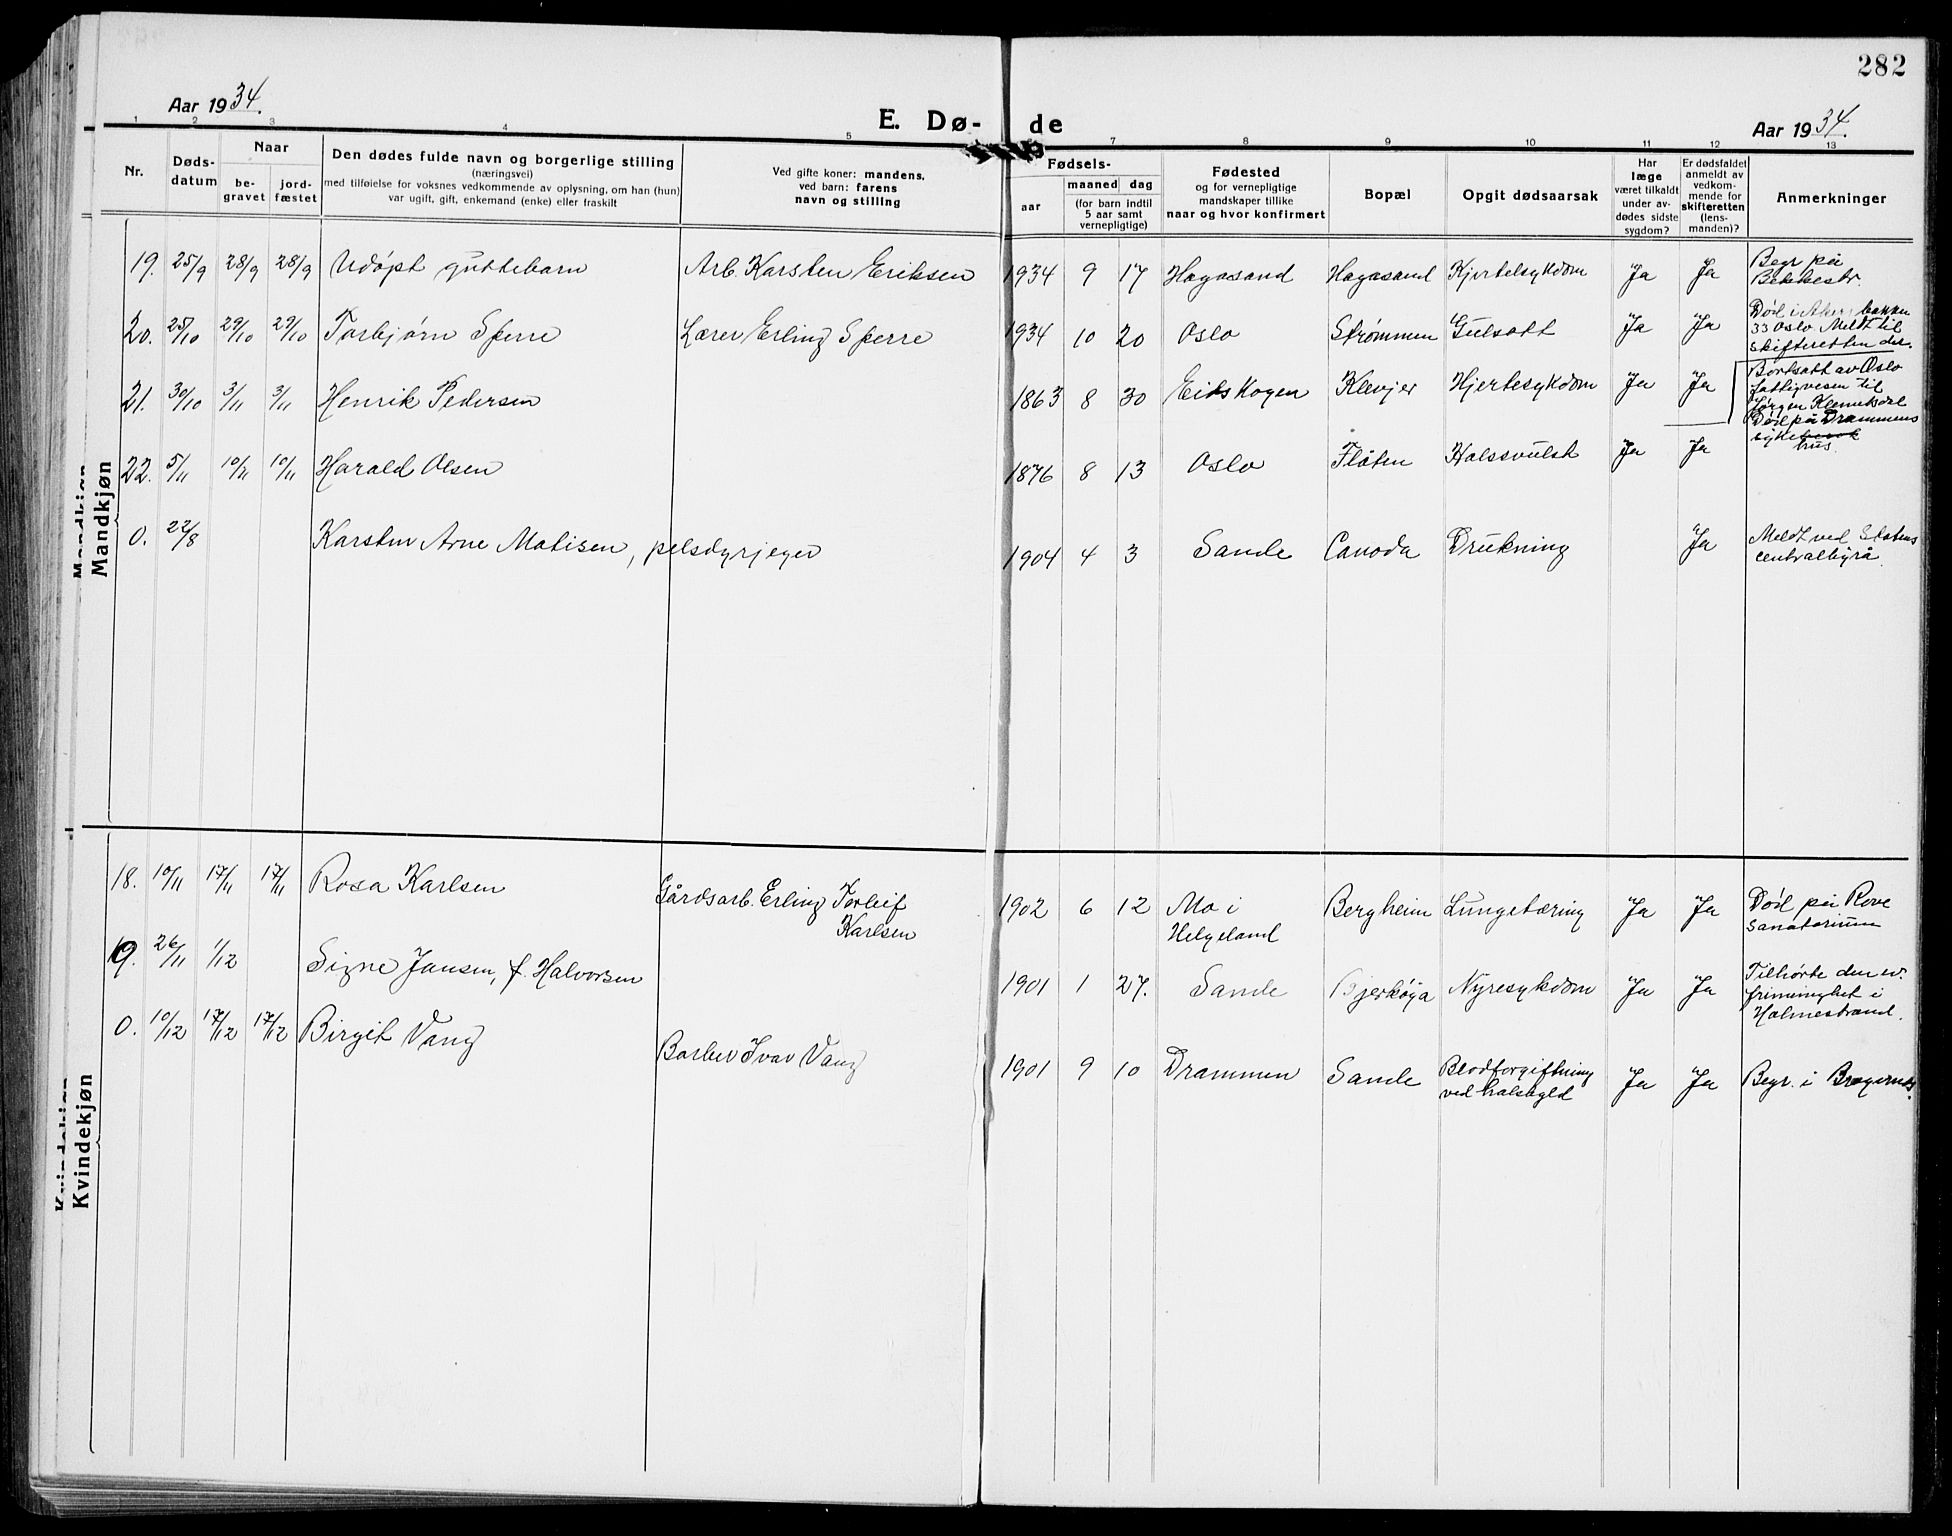 282
Aar 1934.
E. Dø- de
Aar 1934.
1 2 3 4 5 7 8 9 10 11 12 13
Nr.
Døds-
datum
Naar
be-
gravet
jord-
fæstet
Den dødes fulde navn og borgerlige stilling
(næringsvei)
med tilføielse for voksnes vedkommende av oplysning, om han (hun)
var ugift, gift, enkemand (enke) eller fraskilt
Ved gifte koner: mandens,
ved barn: farens
navn og stilling
Fødsels-
aar
maaned dag
(for barn indtil
5 aar samt
vernepligtige)
Fødested
og for vernepligtige
mandskaper tillike
naar og hvor konfirmert
Bopæl
Opgit dødsaarsak
Har
læge
været tilkaldt
under av-
dødes sidste
sygdom?
Er dødsfaldet
anmeldt av
vedkom-
mende for
skifteretten
(lens-
manden)?
Anmerkninger
Mandkjøn
19. 25/9 28/9 28/9 Udøpt guttebarn Arb. Karsten Eriksen 1934 9 17 Hagasand Hagasand Kjertelsykdom Ja Ja Begr på
Bekkestr.
20. 25/10 29/10 29/10 Torbjørn Sperre Lærer Erling Sperre 1934 10 20 Oslo Strømmen Gulsott Ja Ja Død i Akersbakken
33 Oslo. Meldt til
skifteretten der.
21. 30/10 3/11 3/11 Henrik Pedersen 1863 8 30 Eidskogen Klevjer Hjertesykdom Ja Ja Bortsatt av Oslo
fattigvesen til
Jørgen Klemetsdal
22. 5/11 10/11 10/11 Harald Olsen 1876 8 13 Oslo Flåten Halssvulst Ja Ja Død på Drammens
sykehus.
0. 22/8 Karsten Arne Matisen, pelsdyrjeger 1904 4 3 Sande Canada Drukning Ja Meldt ved Statens
centralbyrå.
Kvindekjøn
18. 10/11 17/11 17/11 Rosa Karlsen Gårdsarb. Erling Torleif
Karlsen 1902 6 12 Mo i
Helgeland Bergheim Lungetæring Ja Ja Død på Rove
Sanatorium
19. 26/11 1/12 Signe Jansen, f. Halvorsen 1901 1 27. Sande Bjerkøya Nyresykdom Ja Ja Tilhørte den ev.
frimenighet i
Holmestrand.
0. 10/12 17/12 17/12 Birgit Vang Barber Ivar Vang 1901 9 10 Drammen Sande Blodforgiftning
ved halsbyld Ja Ja Begr. i Bragernes.